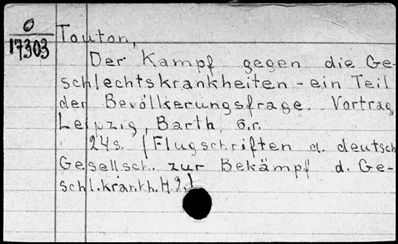 O
17303
Touton,
Der Kampf gegen die Ge-
schlechtskrankheiten - ein Teil
der Bevölkerungsfrage. Vortrag
Leipzig, Barth, o.r.
24s. (Flugschriften d. deutsch
Gesellsch. zur Bekämpf d. Ge-
schl.krankh. H.9.)